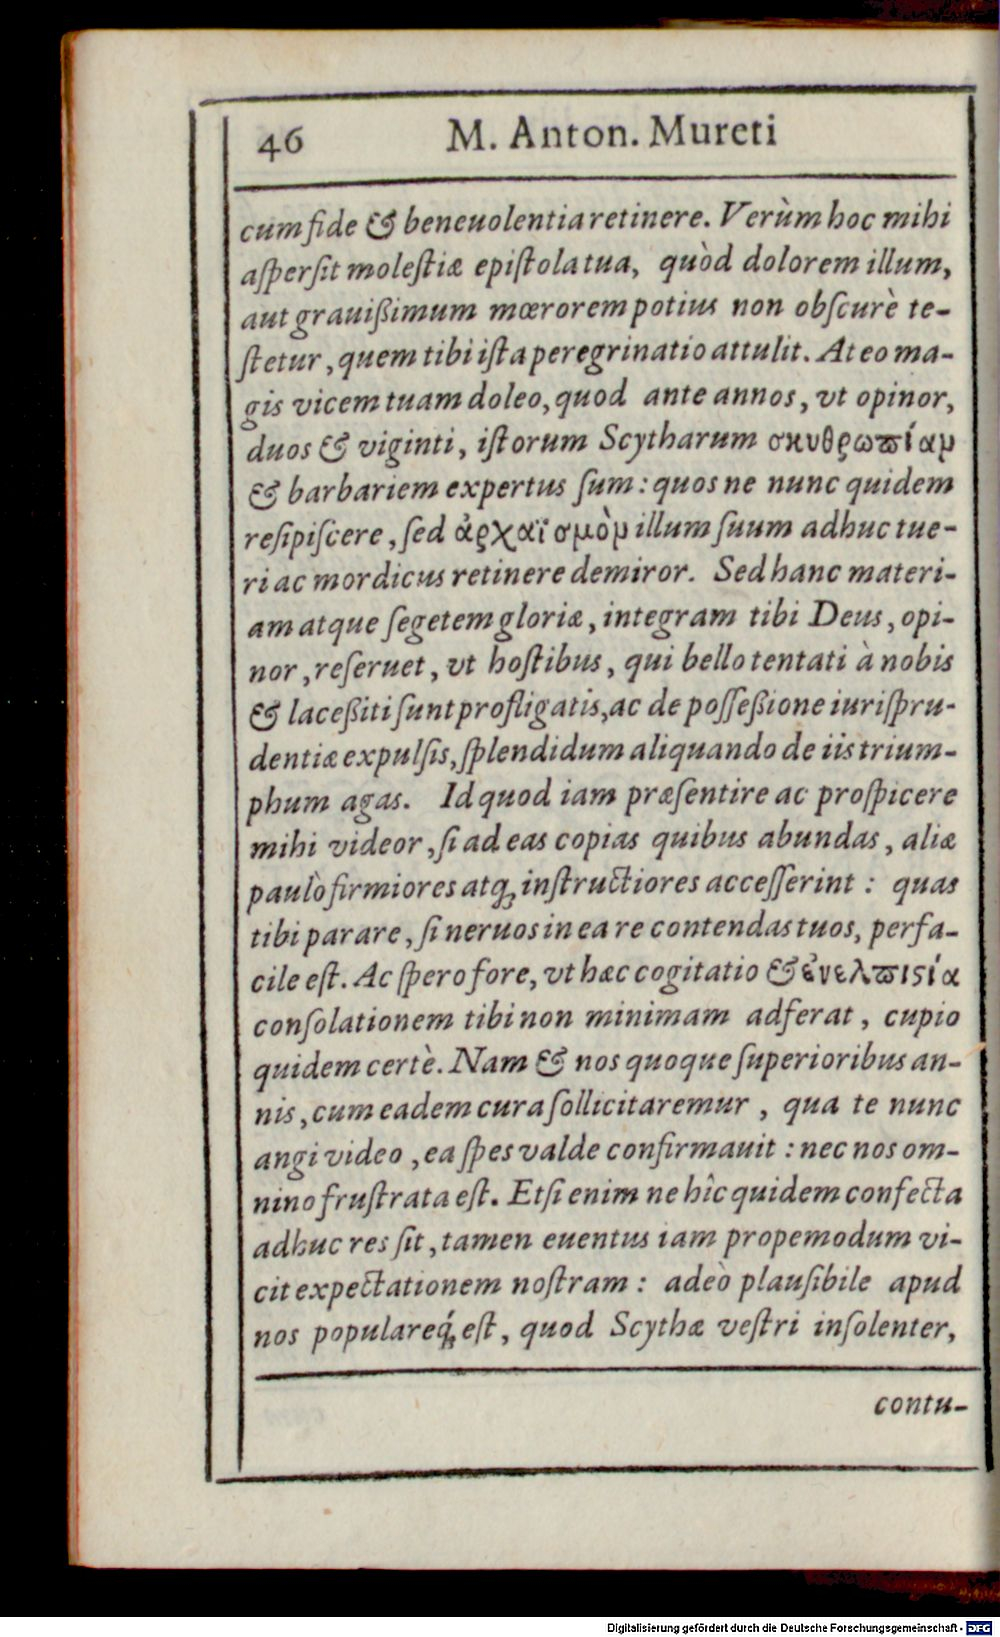 46 M. Anton. Mureti
cum fide & beneuolentia retinere. Verùm hoc mihi
aſperſit moleſtiæ epiſtola tua, quòd dolorem illum,
aut grauißimum mœrorem potius non obſcurè te-
ſtetur, quem tibi iſta peregrinatio attulit. At eo ma-
gis vicem tuam doleo, quod ante annos, vt opinor,
duos & viginti, iſtorum Scytharum σκυθρωπίαν
& barbariem expertus ſum: quos ne nunc quidem
reſipiſcere, ſed ἀρχαϊσμὸν illum ſuum adhuc tue-
ri ac mordicus retinere demiror. Sed hanc materi-
am atque ſegetem gloriæ, integram tibi Deus, opi-
nor, reſeruet, vt hoſtibus, qui bello tentati à nobis
& laceßiti ſunt profligatis, ac de poſſeßione iuriſpru-
dentiæ expulſis, ſplendidum aliquando de iis trium-
phum agas. Id quod iam præſentire ac proſpicere
mihi videor, ſi ad eas copias quibus abundas, aliæ
paulò firmiores atq; inſtructiores acceſſerint: quas
tibi parare, ſi neruos in ea re contendas tuos, perfa-
cile eſt. Ac ſpero fore, vt hæc cogitatio & ἐνελπιςία
conſolationem tibi non minimam adferat, cupio
quidem certè. Nam & nos quoque ſuperioribus an-
nis, cum eadem cura ſollicitaremur, qua te nunc
angi video, ea ſpes valde confirmauit: nec nos om-
nino fruſtrata eſt. Etſi enim ne hîc quidem confecta
adhuc res ſit, tamen euentus iam propemodum vi-
cit expectationem noſtram: adeò plauſibile apud
nos populareq́; eſt, quod Scythæ veſtri inſolenter,
contu-
Digitalisierung gefördert durch die Deutsche Forschungsgemeinschaft - DFG